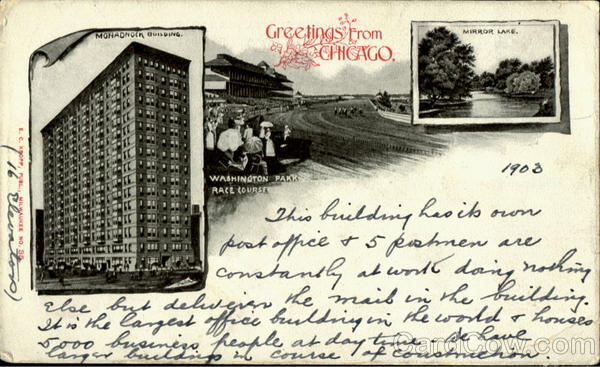 MONADNOCK BUILDING.
Greetings From
CHICAGO.
MIRROR LAKE.
WASHINGTON PARK
RACE COURSE
E. C. KROPP, PUBL., MILWAUKEE NO.
(16 Elevators)
1903
This building has its own
post office & 5 postmen are
constantly at work doing nothing
Else but deliver the mail in the building.
It is the largest office building in the world & houses
5000 business people at day time. have
larger buildings in course of construction.
CardCow.com